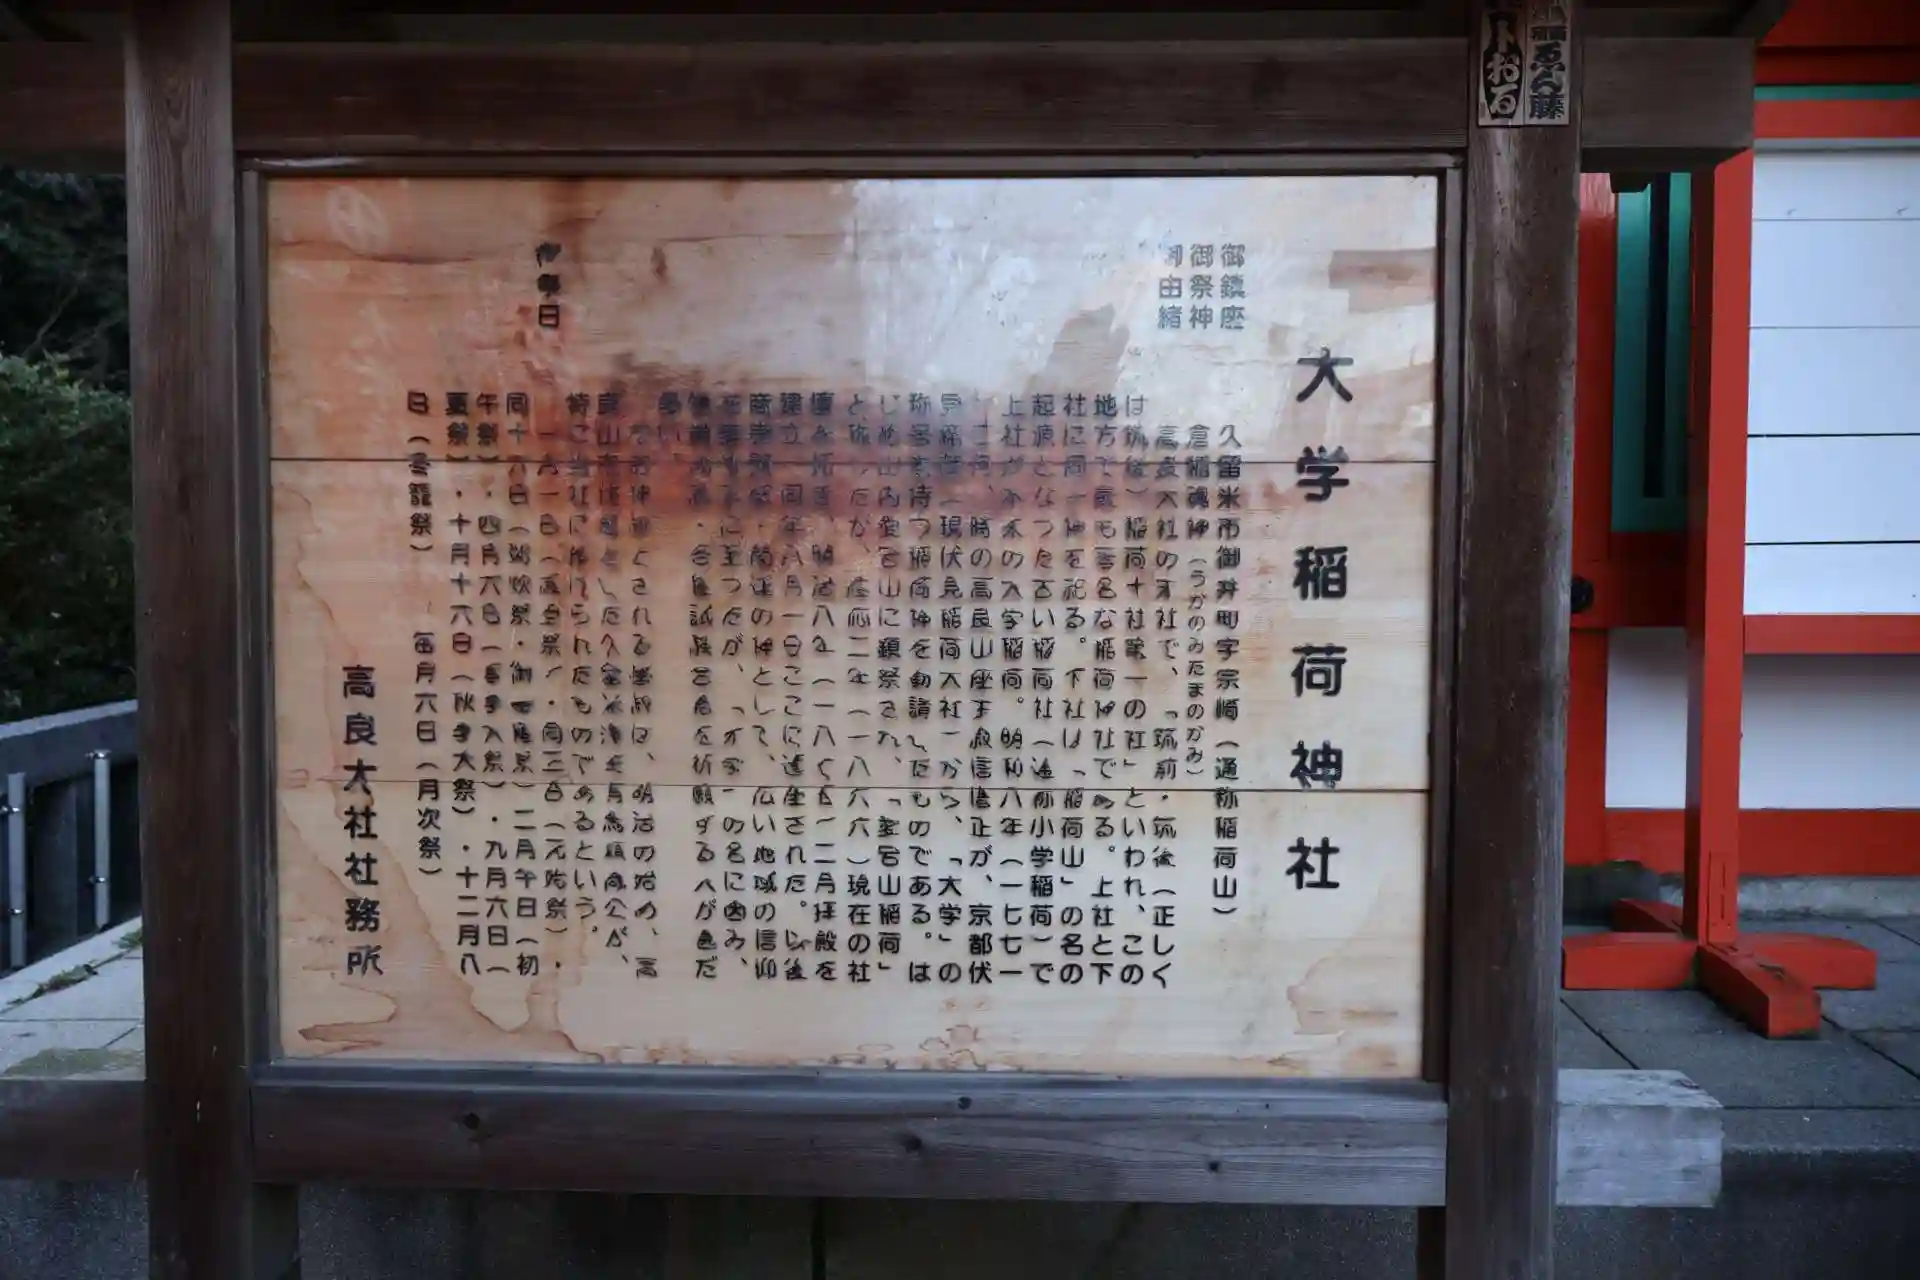 大学稲荷神社
御鎮座 久留米市御井町字宗崎（通称稲荷山）
御祭神 倉稲魂神（うがのみたまのかみ）
御由緒 高良大社の末社で、「筑前・筑後（正しく
は筑後）稲荷十社第一の社」といわれ、この
地方で最も著名な稲荷神社である。上社と下
社に同一神を祀る。下社は「稲荷山」の名の
起源となった古い稲荷社（通称小学稲荷）で
上社が本来の大学稲荷。明和八年（一七七一
）二月、時の高良山座主寂信僧正が、京都伏
見稲荷（現伏見稲荷大社）から、「大学」の
称号を持つ稲荷神を勧請したものである。は
じめ山内愛宕山に鎮祭され、「愛宕山稲荷」
と称したが、慶応二年（一八六六）現在の社
二月拝殿を
建立、同年八月一日ここに遷座された。以後
商売繁盛・開運の神として、広い地域の信仰
を集めるに至ったが、「大学」の名に因み、
合格試験合格を祈願する人が急だ
多い。
明治の始め、高
良山
特に当社に捧げられたものであるという。
御祭日 一月一日（歳旦祭）・同三日（元始祭）・
同十六日（粥炊祭・）二月午日（初
午祭）・四月六日（）・九月六日（
夏祭）・十月十六日（秋季大祭）・十二月八
日（冬籠祭） 毎月六日（月次祭）
高良大社社務所
ゑん藤
おる